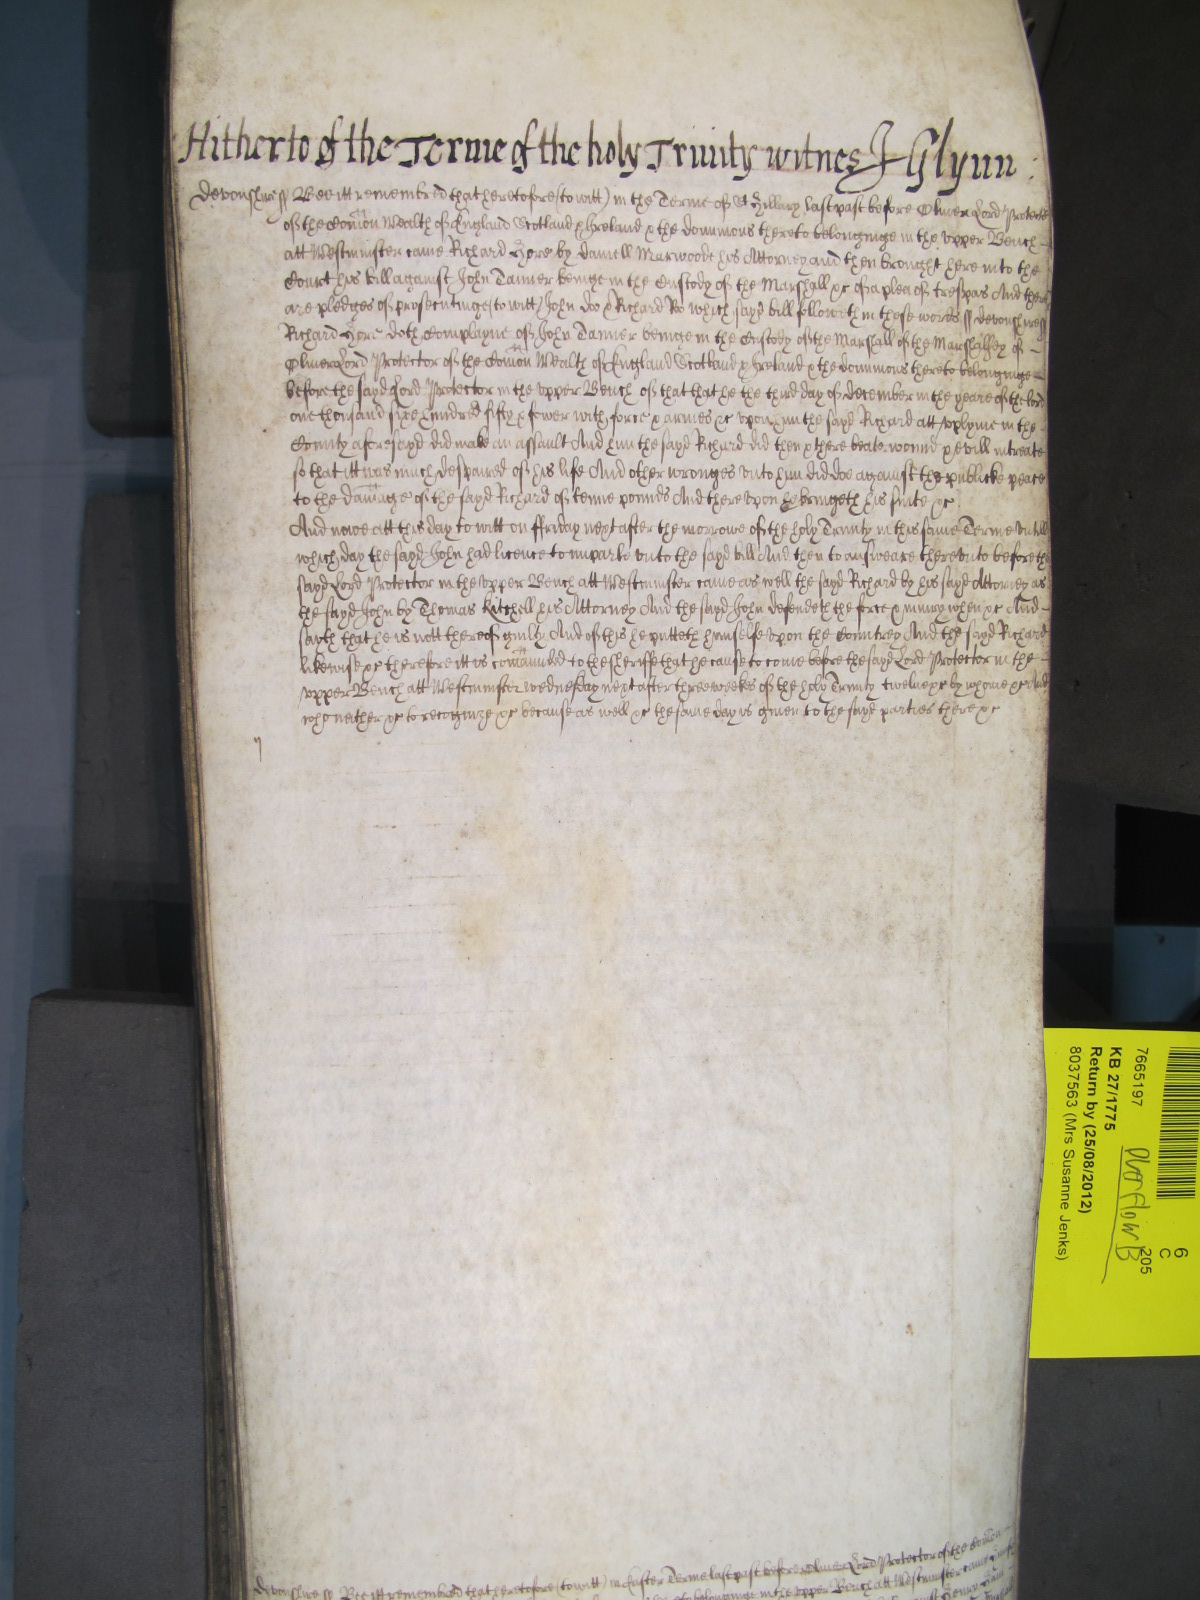 Hitherto of the Terme of the holy Trinity witnes J Glynn :
Devonshire ss Bee itt remembred that heretofore (to witt) in the Terme of St Hillary last past before Oliver Lord Protector
of the Comon Wealth of England Scotland & Ireland & the dominions thereto belonginge in the upper Bench
att Westminster came Richard Hore by Daniell Marwoode his Attorney and then brought here in to the
Court his bill against John Tanner beinge in the Custody of the Marshall &c of a plea of trespas And there
are pledges of prosecutinge (to witt) John Doo & Richard Roo which sayd bill followeth in these words ss Devonshire ss
Richard Hore doth Complayne of John Tanner beinge in the Custody of the Marshall of the Marshalsey of
Oliver Lord Protector of the Comon Wealth of England Scotland & Ireland & the dominions thereto belonginge
before the sayd Lord Protector in the upper Bench of that that he the third day of december in the yeare of the lord
one thousand sixe hundred fifty & fower with force & armes &c upon him the sayd Richard att Plymc in the
County aforesayd did make an assault And him the sayd Richard did then & there beate wound & evill intreate
so that itt was much despaired of his life And other wronges unto him did doe against the publicke peace
to the damage of the sayd Richard of tenne pounds And thereupon he bringeth his suite &c
And nowe att this day to witt on ffriday next after the morrowe of the holy Trinity in this same Terme untill
which day the sayd John had licence to imparle unto the sayd bill And then to answeare thereunto before the
sayd Lord Protector in the upper Bench att Westminster came as well the sayd Richard by his sayd Attorney as
the sayd John by Thomas Kitchell his Attorney And the sayd John defendeth the force & iniury when &c And
sayth that he is nott thereof guilty And of this he putteth himselfe upon the Countrey And the sayd Richard
likewise &c therefore itt is comaunded to the sheriffe that he cause to come before the sayd Lord Protector in the
upper Bench att Westminster wednesday next after three weekes of the holy Trinity twelve &c by whome &c And
who neither &c to recognize &c because as well &c the same day is given to the sayd parties there &c
Devonshire ss Bee itt remembred that heretofore (to witt) in Easter Terme last past before Oliver Lord Protector of the Comon
thereto belonginge in the upper Bench att Westminster came
7665197
KB 27/1775
Return by (25/08/2012)
8037563 (Mrs Susanne Jenks)
Overflow B
6
C
205